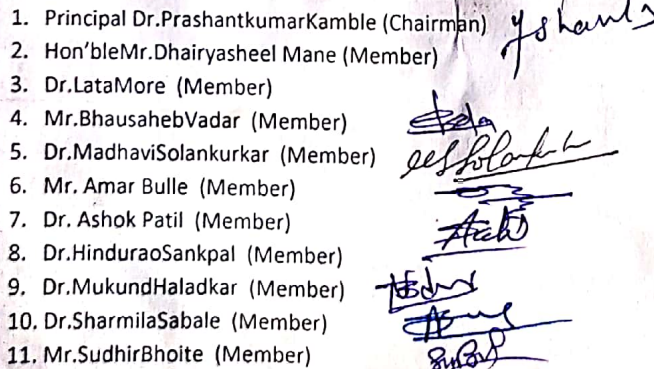 1. Principal Dr.PrashantkumarKamble (Chairman)
2. Hon'bleMr.Dhairyasheel Mane (Member)
3. Dr.LataMore (Member)
4. Mr.BhausahebVadar (Member)
5. Dr.MadhaviSolankurkar (Member)
6. Mr. Amar Bulle (Member)
7. Dr. Ashok Patil (Member)
8. Dr.HinduraoSankpal (Member)
9. Dr.MukundHaladkar (Member)
10. Dr.SharmilaSabale (Member)
11. Mr.SudhirBhoite (Member)